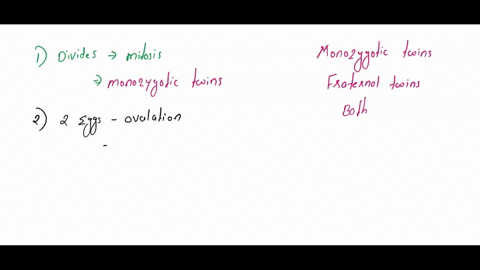 1) Divides → mitosis
⇒ monozygotic twins
2) 2 Eggs - ovulation
-
Monozygotic twins
Fraternal twins
Both